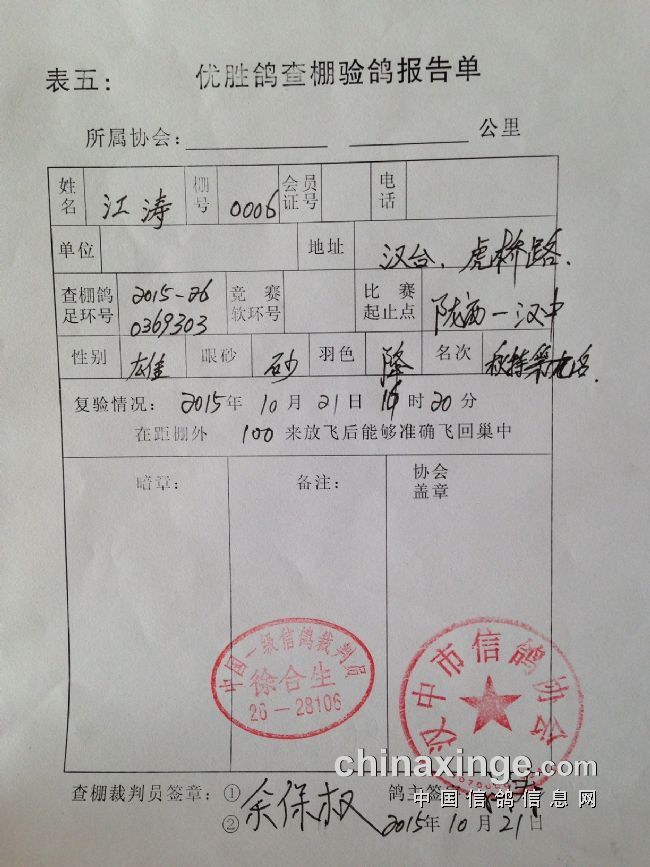 表五：
优胜鸽查棚验鸽报告单
所属协会：　公里
姓名 江涛 棚号 0006 会员证号 电话
单位 地址 汉台、虎桥路.
查棚鸽足环号 2015-26 0369303 竞赛软环号 比赛起止点 陇西—汉中
性别 雄 眼砂 砂 羽色 名次
复验情况：2015年10月21日 时20分
在距棚外 100 来放飞后能够准确飞回巢中
暗章： 备注： 协会盖章
中国一级信鸽裁判员
徐合生
26－28106
汉中市信鸽协会
查棚裁判员签章：① 余保权 鸽主签
② 2015年10月21日
chinaxinge.com
中国信鸽信息网